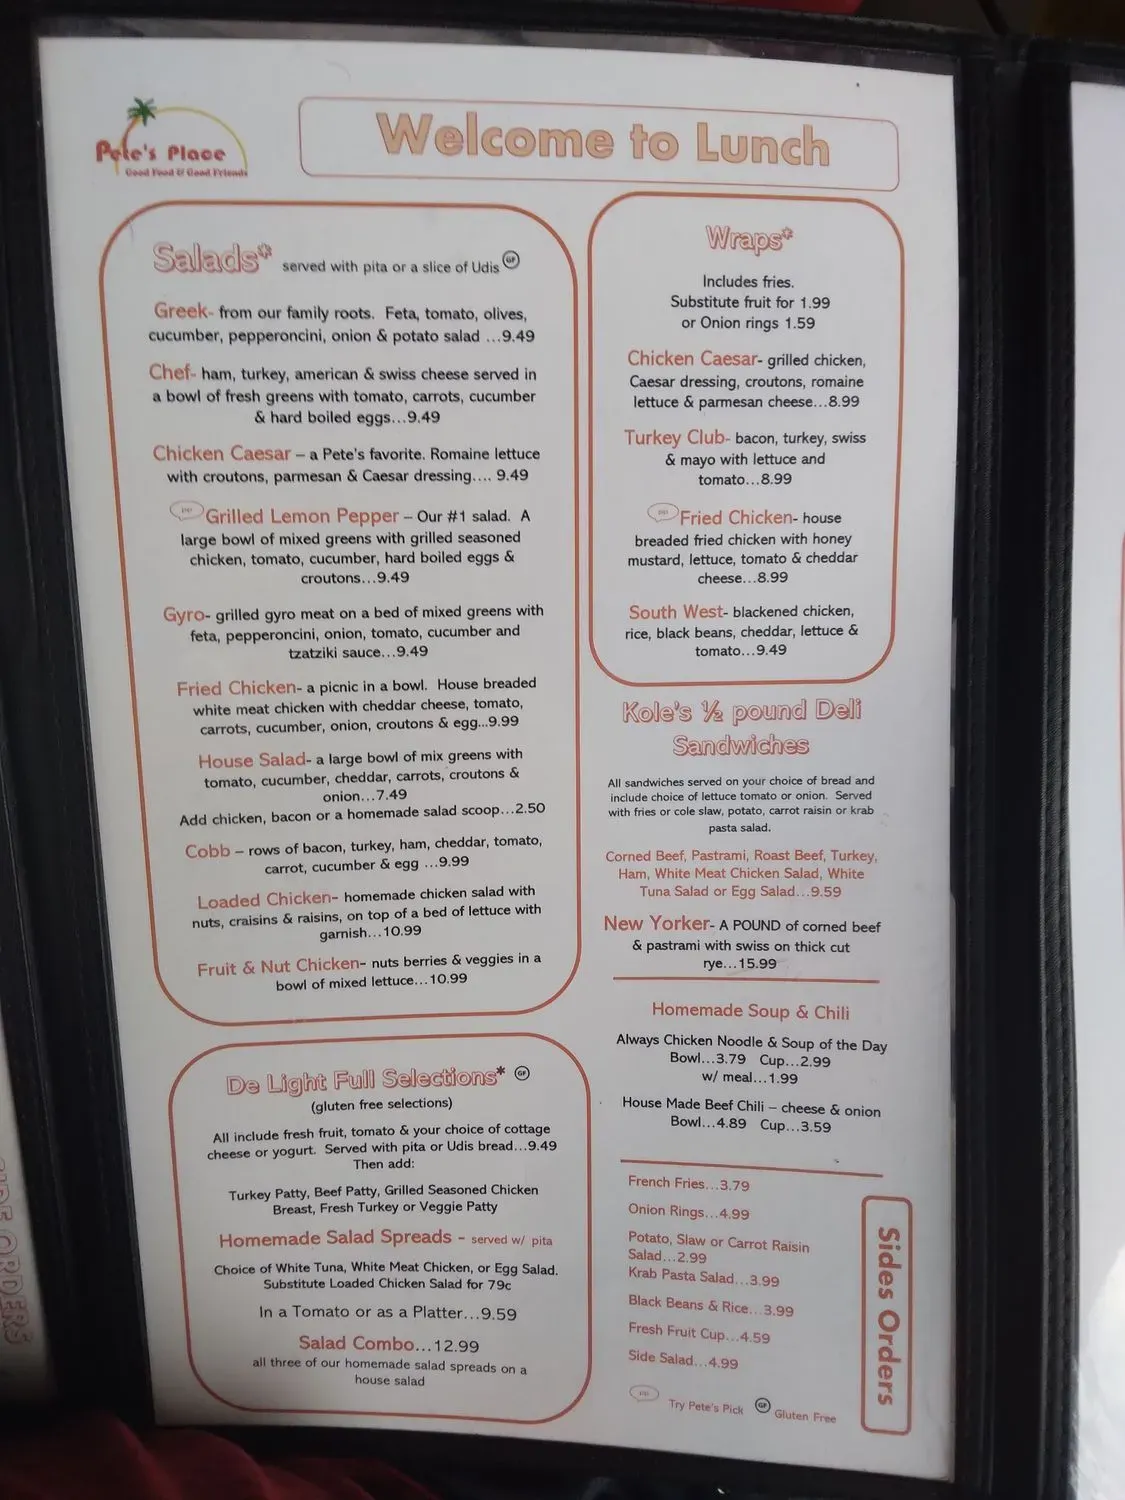 Pete's Place
Good Food & Good Friends
Welcome to Lunch
Salads* served with pita or a slice of Udis GF
Greek- from our family roots. Feta, tomato, olives,
cucumber, pepperoncini, onion & potato salad ...9.49
Chef- ham, turkey, american & swiss cheese served in
a bowl of fresh greens with tomato, carrots, cucumber
& hard boiled eggs...9.49
Chicken Caesar – a Pete's favorite. Romaine lettuce
with croutons, parmesan & Caesar dressing.... 9.49
PP Grilled Lemon Pepper – Our #1 salad. A
large bowl of mixed greens with grilled seasoned
chicken, tomato, cucumber, hard boiled eggs &
croutons...9.49
Gyro- grilled gyro meat on a bed of mixed greens with
feta, pepperoncini, onion, tomato, cucumber and
tzatziki sauce...9.49
Fried Chicken- a picnic in a bowl. House breaded
white meat chicken with cheddar cheese, tomato,
carrots, cucumber, onion, croutons & egg...9.99
House Salad- a large bowl of mix greens with
tomato, cucumber, cheddar, carrots, croutons &
onion...7.49
Add chicken, bacon or a homemade salad scoop...2.50
Cobb – rows of bacon, turkey, ham, cheddar, tomato,
carrot, cucumber & egg ...9.99
Loaded Chicken- homemade chicken salad with
nuts, craisins & raisins, on top of a bed of lettuce with
garnish...10.99
Fruit & Nut Chicken- nuts berries & veggies in a
bowl of mixed lettuce...10.99
De Light Full Selections* GF
(gluten free selections)
All include fresh fruit, tomato & your choice of cottage
cheese or yogurt. Served with pita or Udis bread...9.49
Then add:
Turkey Patty, Beef Patty, Grilled Seasoned Chicken
Breast, Fresh Turkey or Veggie Patty
Homemade Salad Spreads - served w/ pita
Choice of White Tuna, White Meat Chicken, or Egg Salad.
Substitute Loaded Chicken Salad for 79c
In a Tomato or as a Platter...9.59
Salad Combo...12.99
all three of our homemade salad spreads on a
house salad
Wraps*
Includes fries.
Substitute fruit for 1.99
or Onion rings 1.59
Chicken Caesar- grilled chicken,
Caesar dressing, croutons, romaine
lettuce & parmesan cheese...8.99
Turkey Club- bacon, turkey, swiss
& mayo with lettuce and
tomato...8.99
PP Fried Chicken- house
breaded fried chicken with honey
mustard, lettuce, tomato & cheddar
cheese...8.99
South West- blackened chicken,
rice, black beans, cheddar, lettuce &
tomato...9.49
Kole's ½ pound Deli
Sandwiches
All sandwiches served on your choice of bread and
include choice of lettuce tomato or onion. Served
with fries or cole slaw, potato, carrot raisin or krab
pasta salad.
Corned Beef, Pastrami, Roast Beef, Turkey,
Ham, White Meat Chicken Salad, White
Tuna Salad or Egg Salad...9.59
New Yorker- A POUND of corned beef
& pastrami with swiss on thick cut
rye...15.99
Homemade Soup & Chili
Always Chicken Noodle & Soup of the Day
Bowl...3.79 Cup...2.99
w/ meal...1.99
House Made Beef Chili – cheese & onion
Bowl...4.89 Cup...3.59
Sides Orders
French Fries...3.79
Onion Rings...4.99
Potato, Slaw or Carrot Raisin
Salad...2.99
Krab Pasta Salad...3.99
Black Beans & Rice...3.99
Fresh Fruit Cup...4.59
Side Salad...4.99
PP Try Pete's Pick GF Gluten Free
SIDE ORDERS